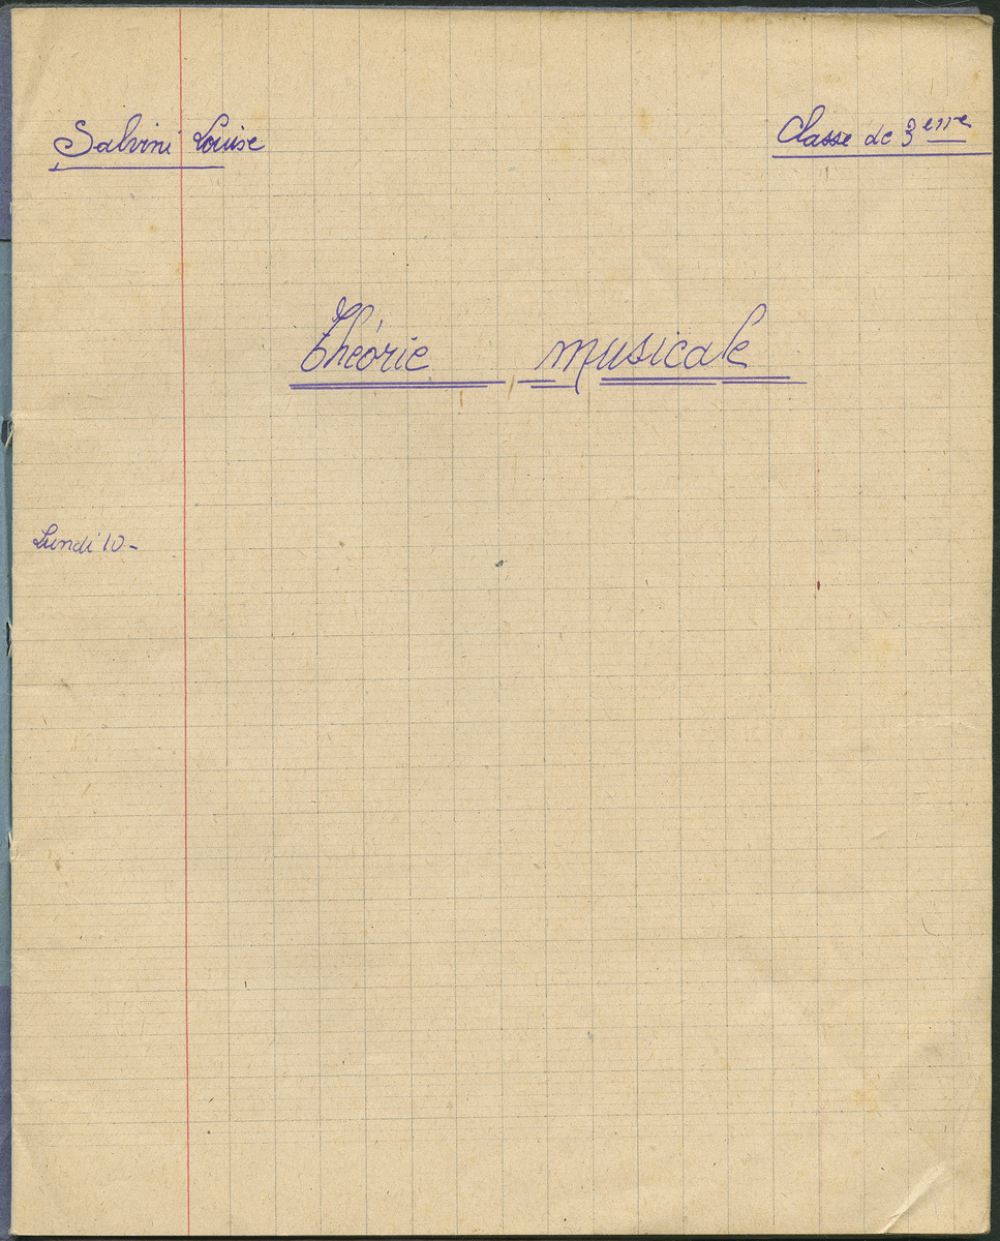 Salvini Louise
Classe de 3ème
Théorie musicale
Lundi 10-